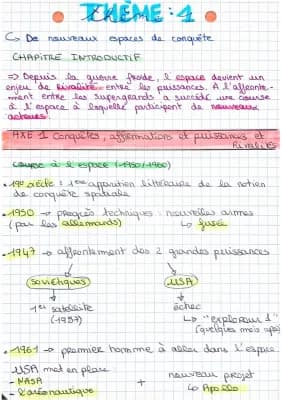 THÈME : 1
↳ De nouveaux espaces de conquête
CHAPITRE INTRODUCTIF
⇒ Depuis la guerre froide, l'espace devient un
enjeu de rivalité entre les puissances. A l'affronte-
ment entre les supergrands a succédé une course
à l'espace à laquelle participent de nouveaux
acteurs.
AXE 1 Conquêtes, affirmations et puissances et
Rivalités
Course à l'espace (1950/1960)
• 19e siècle : 1ère apparition littéraire de la notion
de conquête spatiale
• 1950 → progrès techniques : nouvelles armes
(par les allemands) ↳ fusée
• 1947 → affrontement des 2 grandes puissances
Soviétiques USA
1er satellite échec
(1957) ↳ "explorour 1"
(quelques mois après)
• 1961 → premier homme à aller dans l'espace
USA met en place
- NASA + nouveau projet
- l'aéronautique ↳ Apollo